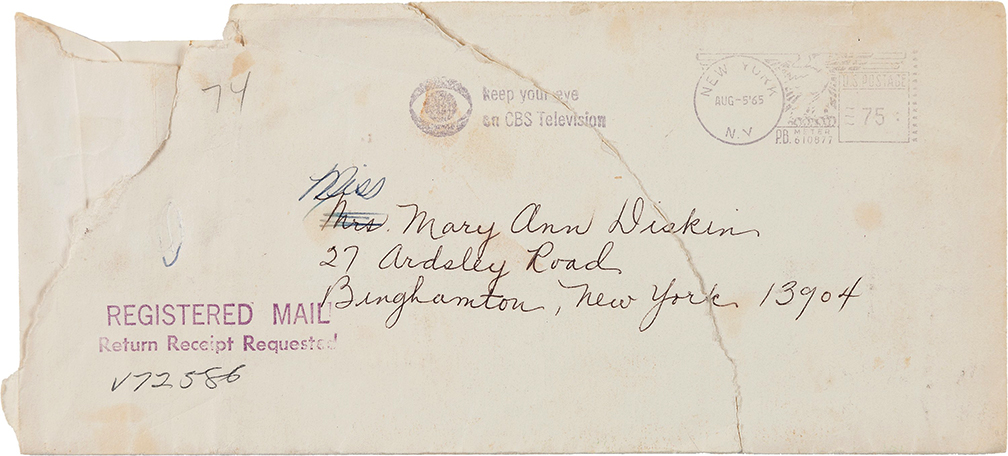 74
keep your eye
on CBS Television
NEW YORK
AUG-5'65
N.Y
U.S. POSTAGE
75
P.B. METER
610877
Miss
Mrs. Mary Ann Diskin
27 Ardsley Road
Binghamton, New York 13904
REGISTERED MAIL
Return Receipt Requested
V72586